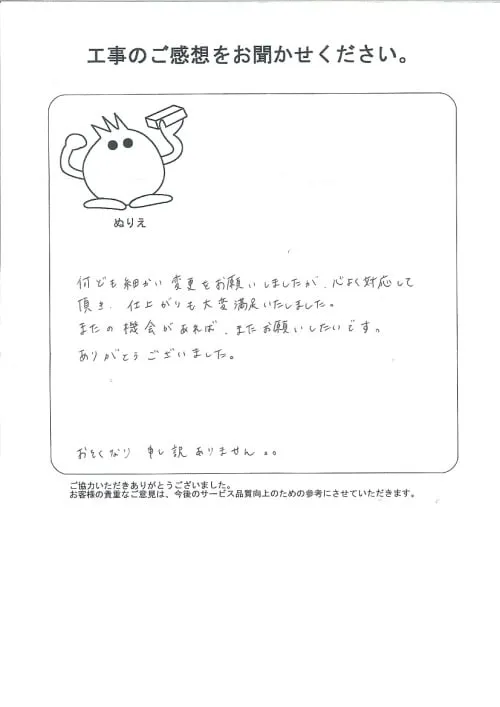 工事のご感想をお聞かせください。
ぬりえ
何ども細かい変更をお願いしましたが、心よく対応して
頂き、仕上がりも大変満足いたしました。
またの機会があれば、またお願いしたいです。
ありがとうございました。
おそくなり 申し訳ありません。。
ご協力いただきありがとうございました。
お客様の貴重なご意見は、今後のサービス品質向上のための参考にさせていただきます。